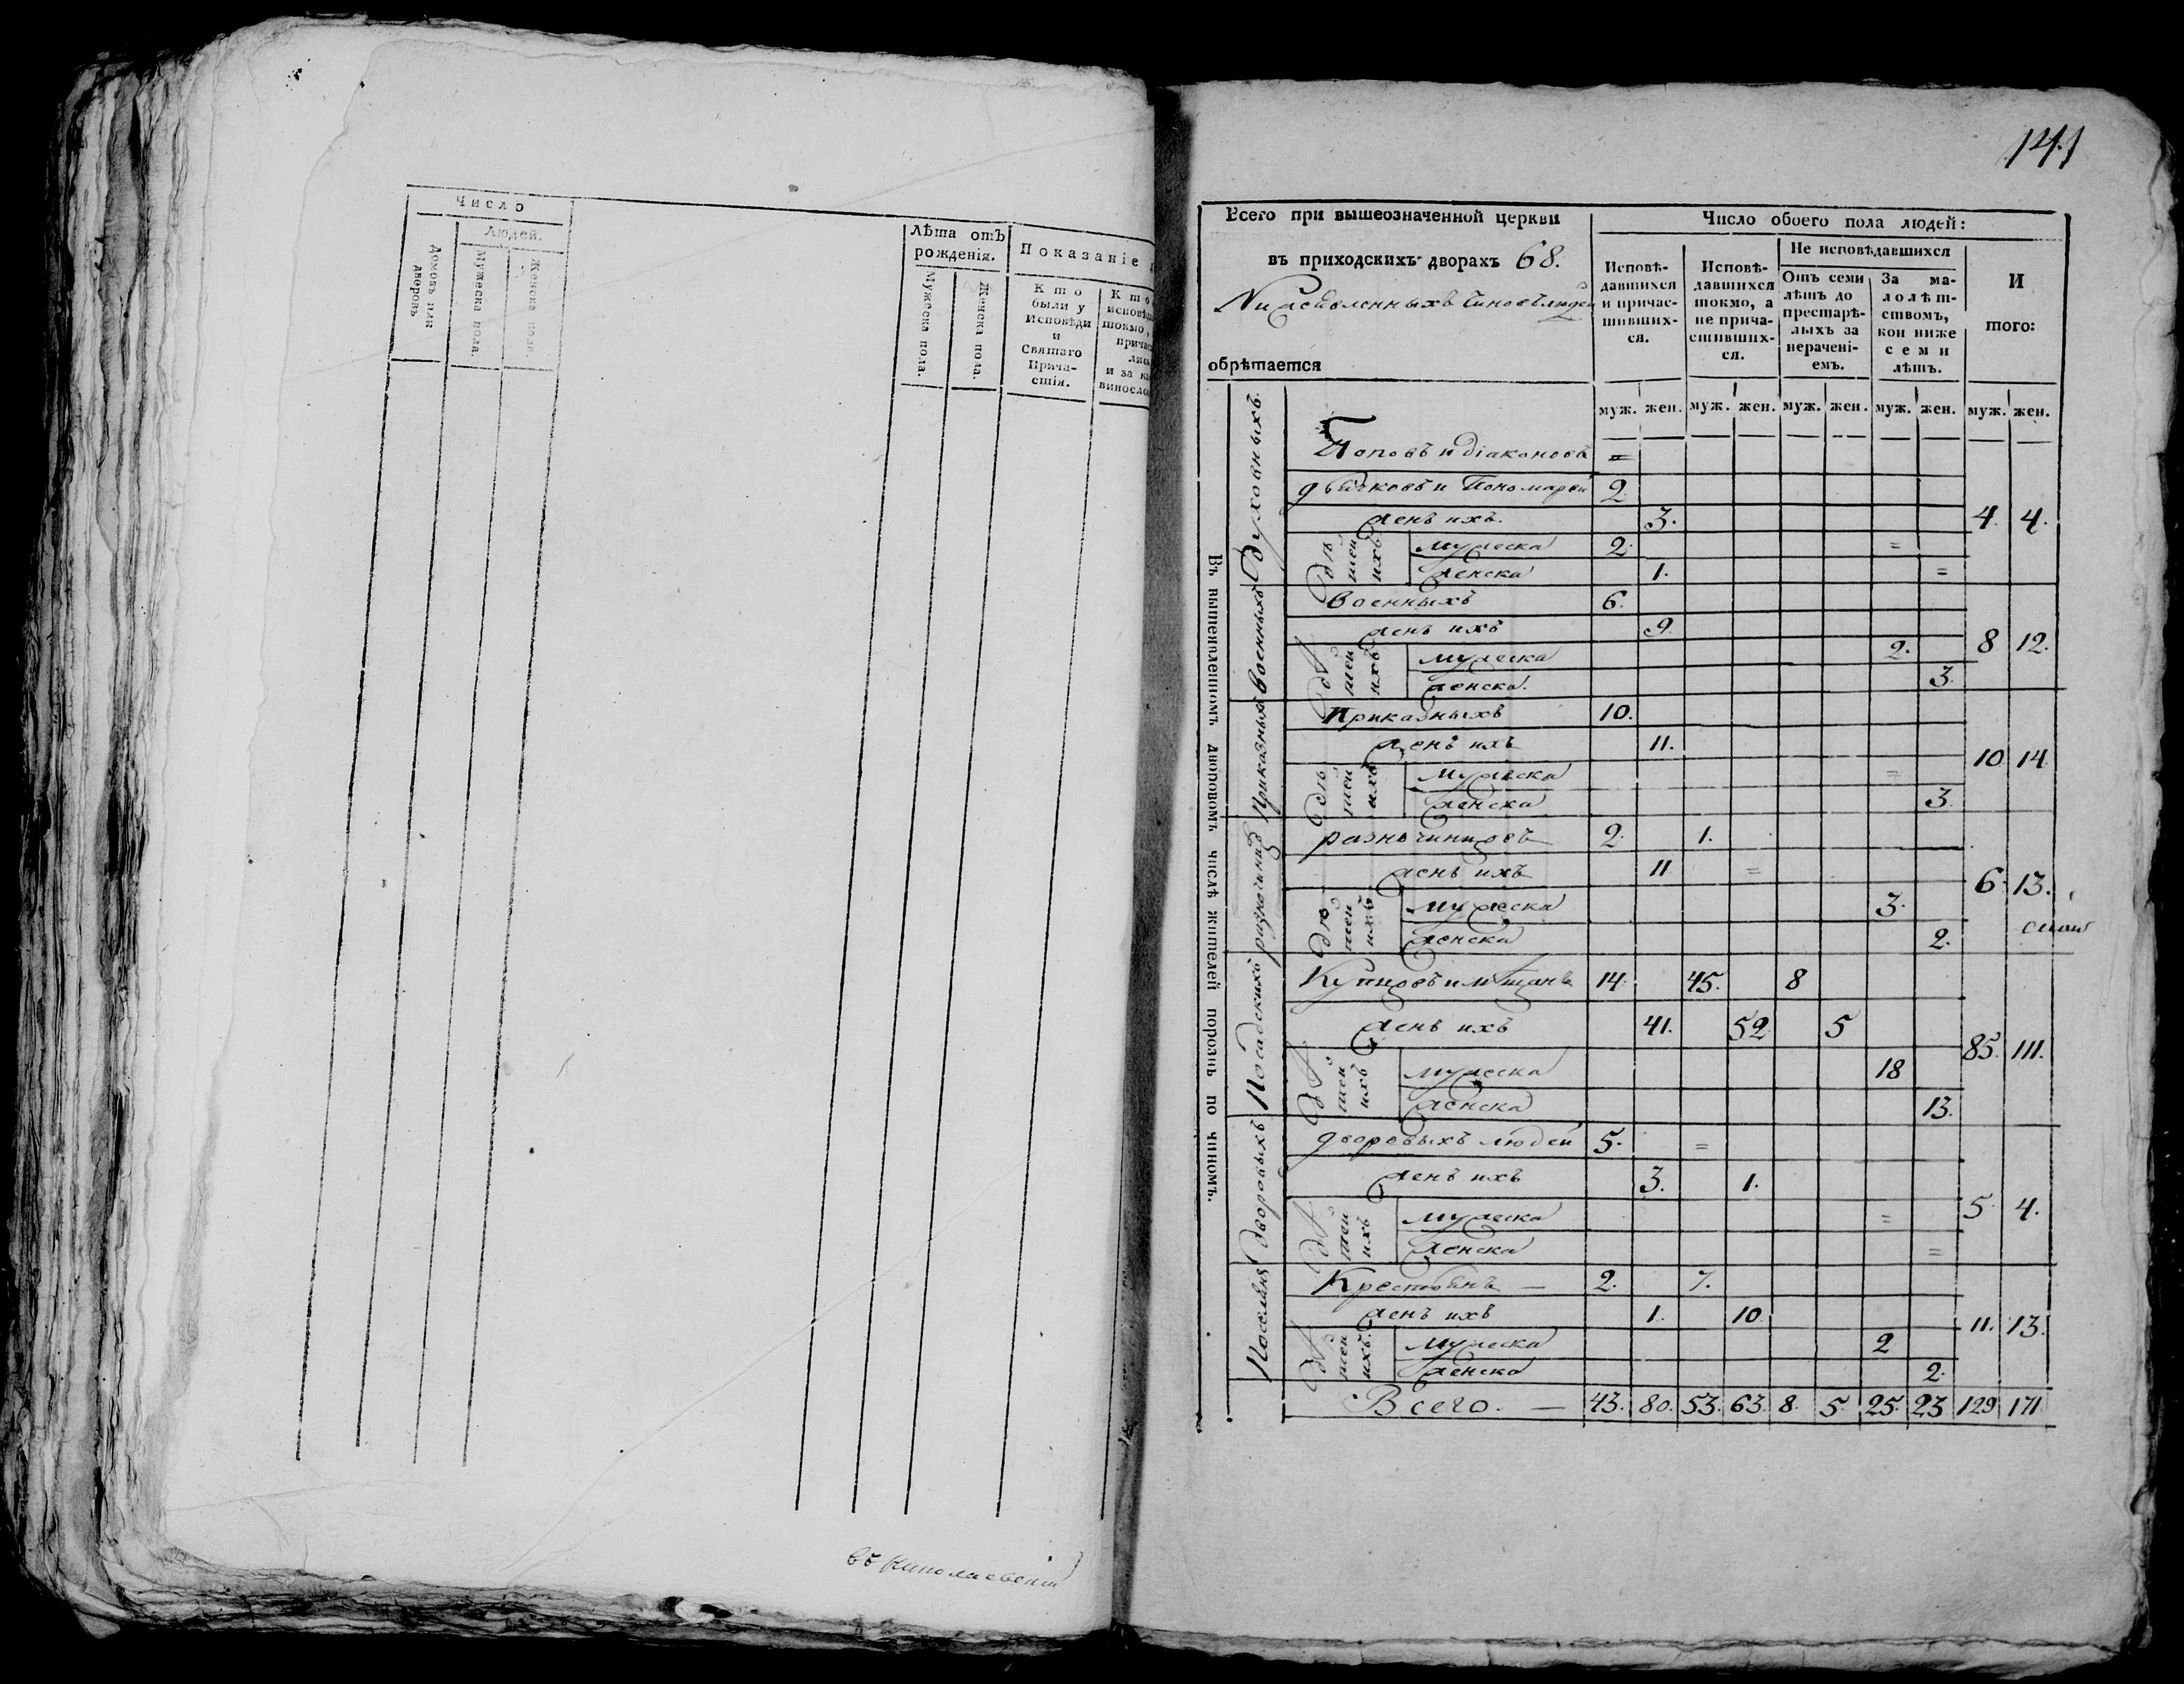 Число
Людей.
домовъ или дворовъ
Мужеска пола.
Женска пола.
Лѣта отъ рожденія.
Мужеска пола.
Женска пола.
Показаніе
Кто были у Исповѣди и Святаго Прича-стія.
141
Всего при вышеозначенной церкви
въ приходскихъ дворахъ 68.
обрѣтается
Число обоего пола людей:
Исповѣ-давшихся и причас-тивших-ся.
Исповѣ-давшихся токмо, а не прича-стивших-ся.
Не исповѣдавшихся
Отъ семи лѣтъ до престарѣ-лыхъ за нерачені-емъ.
За ма-лолѣт-ствомъ, кои ниже семи лѣтъ.
И того:
муж. жен. муж. жен. муж. жен. муж. жен. муж. жен.
Въ вышеявленномъ дворовомъ числѣ жителей порознь по чиномъ.
Духовныхъ
Поповъ и діаконовъ =
дьячковъ и Пономарей 2.
женъ ихъ. 3. 4. 4.
дѣтей ихъ
мужеска 2. =
женска 1. =
Военныхъ
Военныхъ 6.
женъ ихъ 9. 8 12.
дѣтей ихъ
мужеска 2.
женска. 3.
Приказныхъ
Приказныхъ 10.
женъ ихъ 11. 10 14.
дѣтей ихъ
мужеска =
женска 3.
разночинцовъ 2. 1.
женъ ихъ 11 = 6. 13.
дѣтей ихъ
мужеска 3.
женска 2.
Посадскихъ
Купцовъ и мѣщанъ 14. 45. 8
женъ ихъ 41. 52 5 85. 111.
дѣтей ихъ
мужеска 18
женска 13.
дворовыхъ
дворовыхъ людей 5. =
женъ ихъ 3. 1. 5. 4.
дѣтей ихъ
мужеска =
женска =
Поселянъ
Крестьянъ — 2. 7.
женъ ихъ 1. 10. 11. 13.
дѣтей ихъ.
мужеска 2
женска 2.
Всего. — 43. 80. 53. 63. 8. 5. 25. 23 129 171